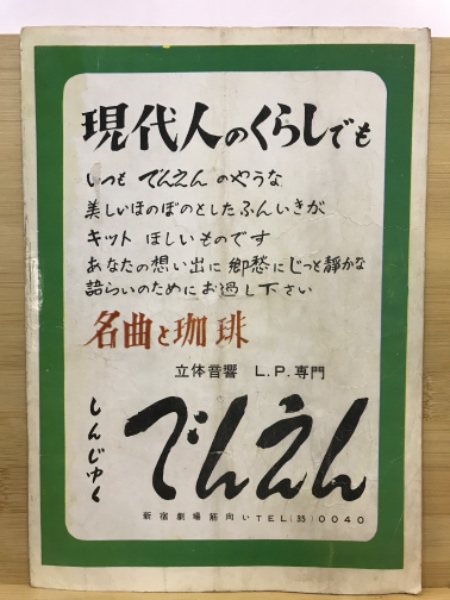 現代人のくらしでも
いつも でんえん のやうな
美しいほのぼのとしたふんいきが
キット ほしいものです
あなたの想い出に 郷愁に じっと静かな
語らいのために お過し下さい
名曲と珈琲
立体音響 L.P.専門
しんじゅく
でんえん
新宿劇場筋向い TEL(35)0040